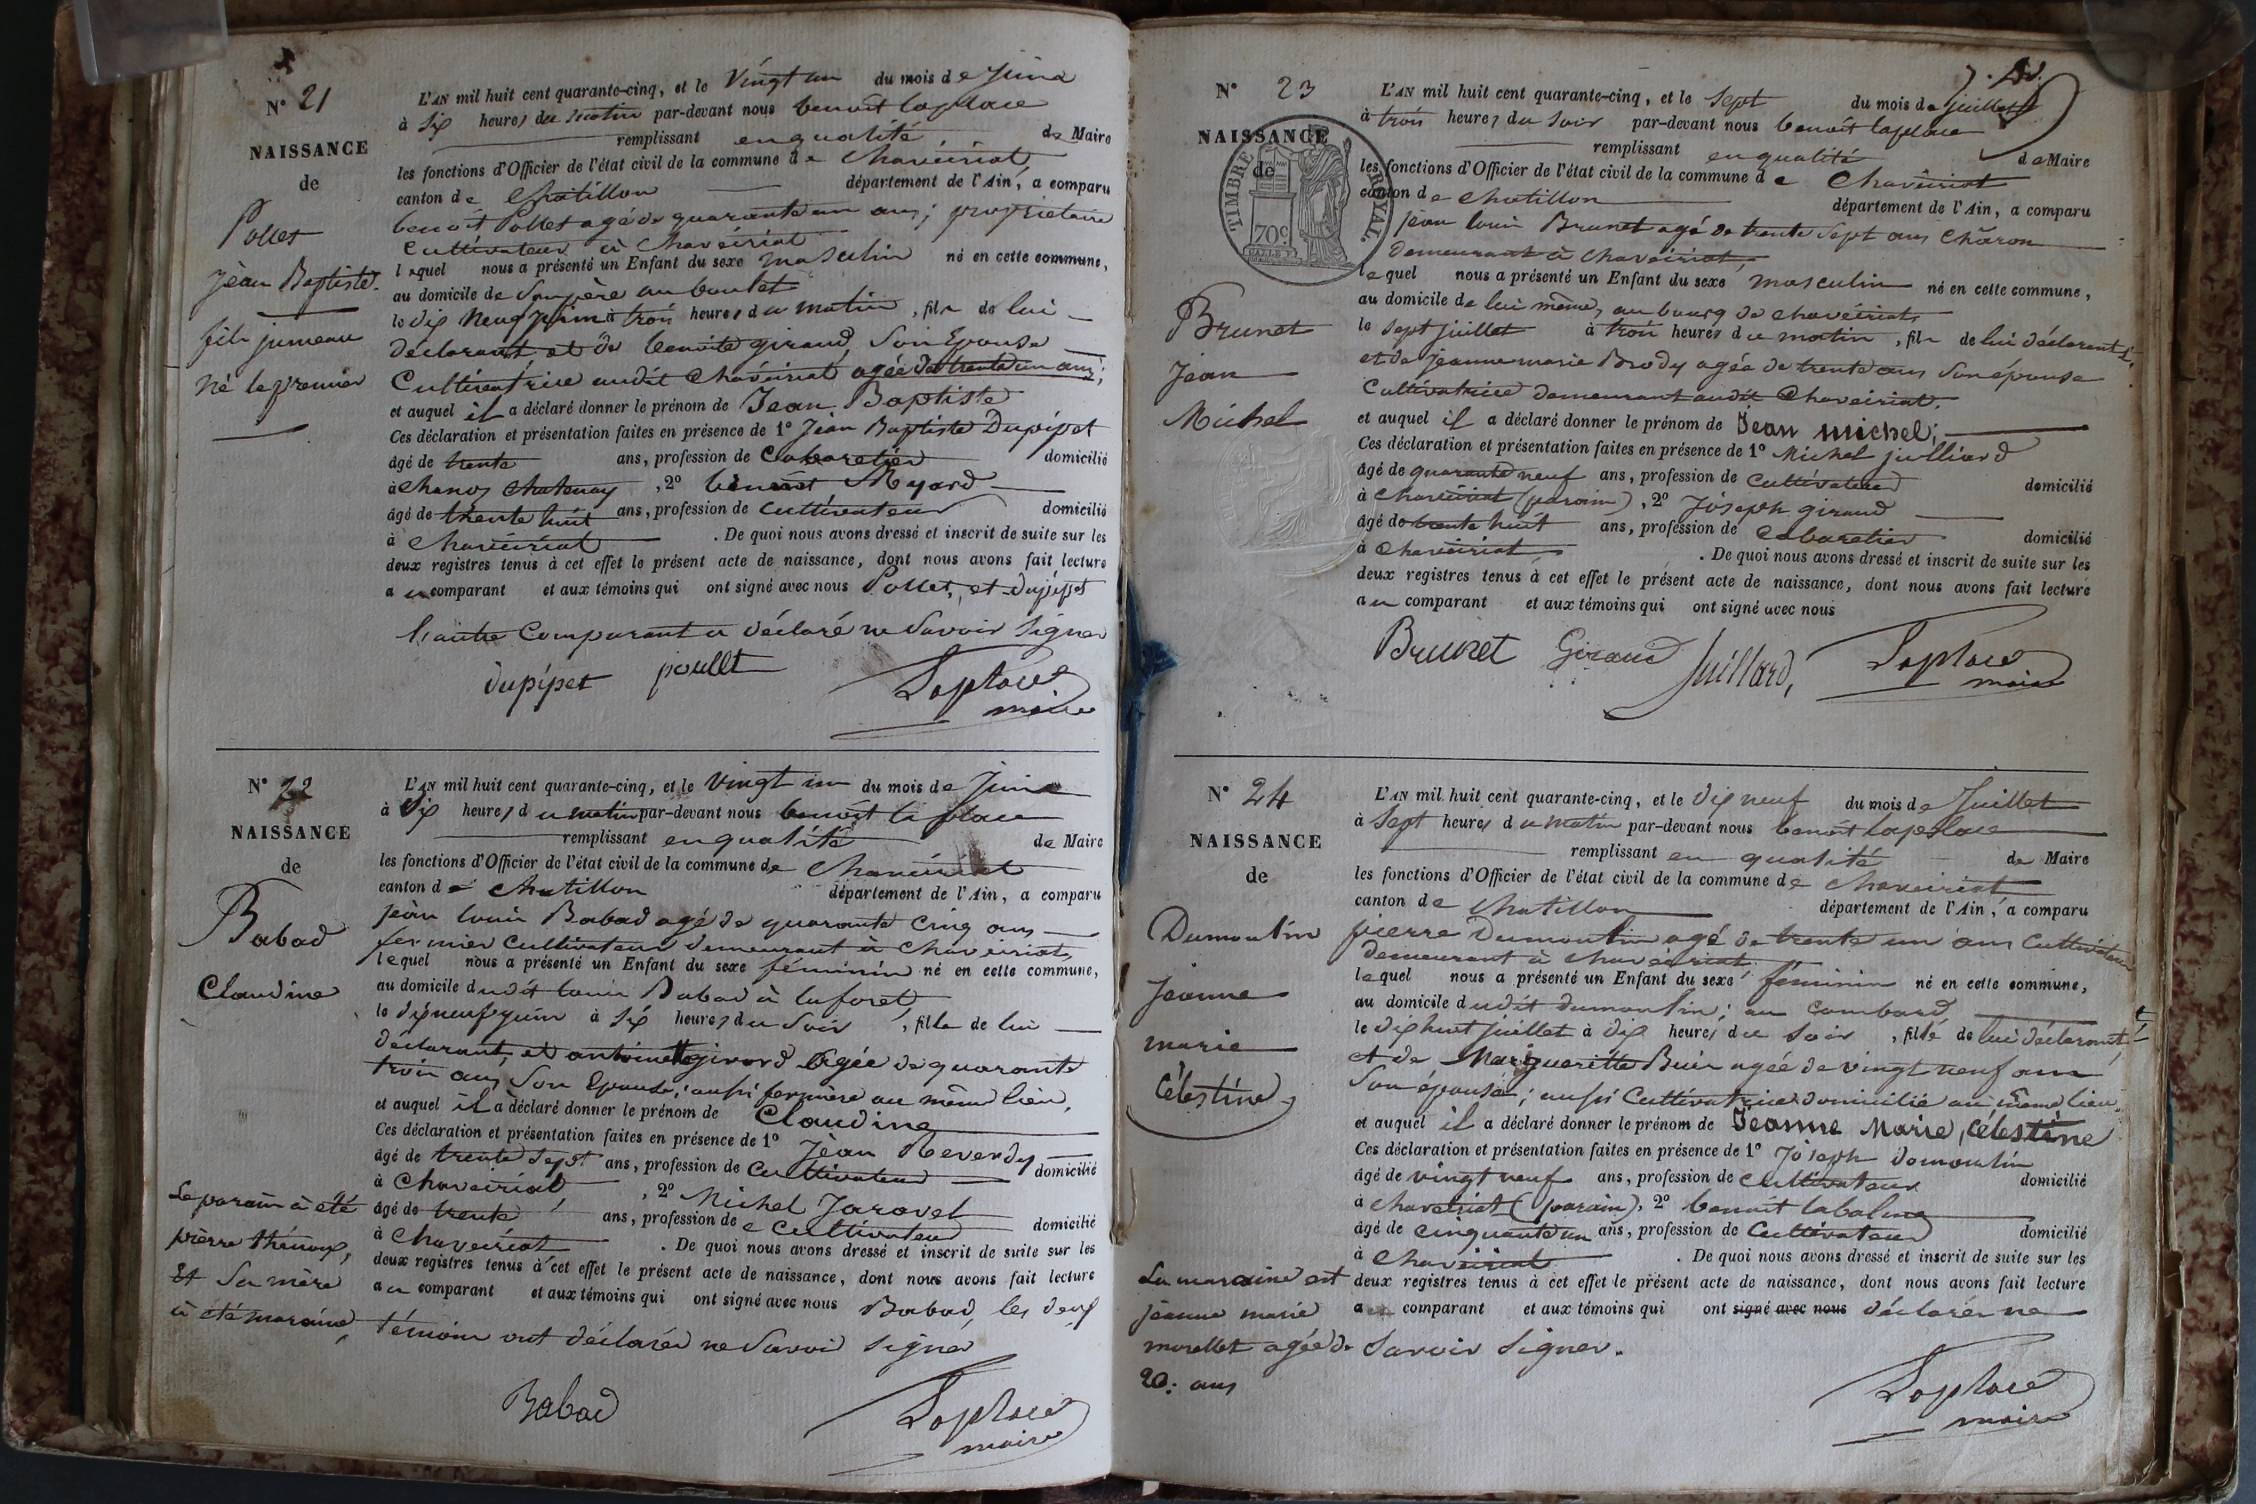 N° 21
NAISSANCE
de
Pollet
jean Baptiste
fils jumeau
né le premier
L'AN mil huit cent quarante-cinq, et le Vingt un du mois de juin
à six heures du matin par-devant nous benoit laplace
remplissant en qualité de Maire
les fonctions d'Officier de l'état civil de la commune de Chaveiriat
canton de Chatillon département de l'Ain, a comparu
benoit Pollet agé de quarante un ans; propriétaire
Cultivateur à Chaveiriat
lequel nous a présenté un Enfant du sexe masculin né en cette commune,
au domicile de Son père au boulet
le dix neuf juin à trois heures du matin, fils de lui
déclarant et de benoite giraud Son Epouse
Cultivatrice audit Chaveiriat agée de trente un ans;
et auquel il a déclaré donner le prénom de Jean Baptiste
Ces déclaration et présentation faites en présence de 1° Jean Baptiste Dupipet
âgé de trente ans, profession de Cabaretier domicilié
à Chanoz Chatenay, 2° benoit Myard
âgé de trente huit ans, profession de cultivateur domicilié
à Chaveiriat. De quoi nous avons dressé et inscrit de suite sur les
deux registres tenus à cet effet le présent acte de naissance, dont nous avons fait lecture
au comparant et aux témoins qui ont signé avec nous Pollet, et Dupipet
l'autre Comparant a déclaré ne Savoir Signer
dupipet poullt Laplace
maire
N° 22
NAISSANCE
de
Babad
Claudine
L'AN mil huit cent quarante-cinq, et le vingt un du mois de Juin
à Six heures du matin par-devant nous benoit la place
remplissant en qualité de Maire
les fonctions d'Officier de l'état civil de la commune de Chaveiriat
canton de Chatillon département de l'Ain, a comparu
jean louis Babad agé de quarante cinq ans
fermier Cultivateur demeurant à Chaveiriat
lequel nous a présenté un Enfant du sexe féminin né en cette commune,
au domicile dudit louis Babad à la foret
le dix neuf juin à Six heures du Soir, fille de lui
déclarant, et antoinette girord agée de quarante
trois ans, Son Epouse; aussi fermière au même lieu,
et auquel il a déclaré donner le prénom de Claudine
Ces déclaration et présentation faites en présence de 1° Jean Reverdy
âgé de trente Sept ans, profession de Cultivateur domicilié
à Chaveiriat, 2° Michel Jaravel
âgé de trente ans, profession de cultivateur domicilié
à Chaveiriat. De quoi nous avons dressé et inscrit de suite sur les
deux registres tenus à cet effet le présent acte de naissance, dont nous avons fait lecture
au comparant et aux témoins qui ont signé avec nous Babad, les deux
témoins ont déclarés ne Savoir Signer
Le parain à été
pierre thénoux,
Et Sa mère
à été maraine,
Babad Laplace
maire
7.
N° 23
NAISSANCE
de
TIMBRE ROYAL.
70c
Brunet
Jean
Michel
L'AN mil huit cent quarante-cinq, et le Sept du mois de juillet
à trois heures du Soir par-devant nous benoit laplace
remplissant en qualité de Maire
les fonctions d'Officier de l'état civil de la commune de Chaveiriat
canton de Chatillon département de l'Ain, a comparu
jean louis Brunet agé de trente Sept ans Charon
demeurant à Chaveiriat,
lequel nous a présenté un Enfant du sexe masculin né en cette commune,
au domicile de lui même, au bourg de Chaveiriat
le Sept juillet à trois heures du matin, fils de lui déclarant
et de Jeanne marie Brody agée de trente ans Son épouse
Cultivatrice demeurant audit Chaveiriat.
et auquel il a déclaré donner le prénom de Jean michel;
Ces déclaration et présentation faites en présence de 1° Michel julliard
âgé de quarante neuf ans, profession de Cultivateur domicilié
à Chaveiriat (parain), 2° Joseph giraud
âgé de trente huit ans, profession de Cabaretier domicilié
à Chaveiriat. De quoi nous avons dressé et inscrit de suite sur les
deux registres tenus à cet effet le présent acte de naissance, dont nous avons fait lecture
au comparant et aux témoins qui ont signé avec nous
Brunet Giraud Juillard, Laplace
maire
N° 24
NAISSANCE
de
Dumoulin
Jeanne
marie
Célestine
L'AN mil huit cent quarante-cinq, et le dix neuf du mois de Juillet
à Sept heures du matin par-devant nous benoit laplace
remplissant en qualité de Maire
les fonctions d'Officier de l'état civil de la commune de Chaveiriat
canton de Chatillon département de l'Ain, a comparu
pierre Dumoulin agé de trente un ans Cultivateur
demeurant à Chaveiriat,
lequel nous a présenté un Enfant du sexe féminin né en cette commune,
au domicile dudit dumoulin; au Combard
le dix huit juillet à dix heures du Soir, fille de lui déclarant
et de Marguerite Buir agée de vingt neuf ans
Son épouse; aussi Cultivatrice domicilié au même lieu.
et auquel il a déclaré donner le prénom de Jeanne Marie, Célestine
Ces déclaration et présentation faites en présence de 1° Joseph domoulin
âgé de vingt neuf ans, profession de cultivateur domicilié
à Chaveiriat (parain), 2° benoit labalme
âgé de cinquante un ans, profession de Cultivateur domicilié
à Chaveiriat. De quoi nous avons dressé et inscrit de suite sur les
deux registres tenus à cet effet le présent acte de naissance, dont nous avons fait lecture
au comparant et aux témoins qui ont signé avec nous déclarés ne
Savoir Signer.
La maraine est
jeanne marie
morellet agée de
20: ans
Laplace
maire